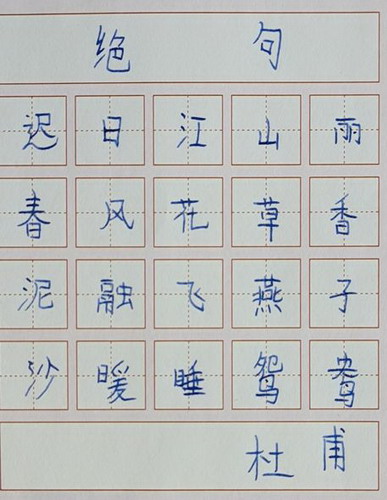 绝句
迟日江山雨
春风花草香
泥融飞燕子
沙暖睡鸳鸯
杜甫